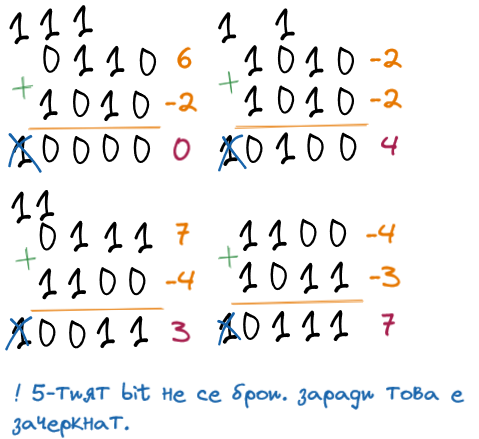 1 1 1 1 1
0 1 1 0 6 1 0 1 0 -2
+ 1 0 1 0 -2 + 1 0 1 0 -2
1 0 0 0 0 0 1 0 1 0 0 4
1 1
0 1 1 1 7 1 1 0 0 -4
+ 1 1 0 0 -4 + 1 0 1 1 -3
1 0 0 1 1 3 1 0 1 1 1 7
! 5-тият bit не се брои. заради това е
зачеркнат.